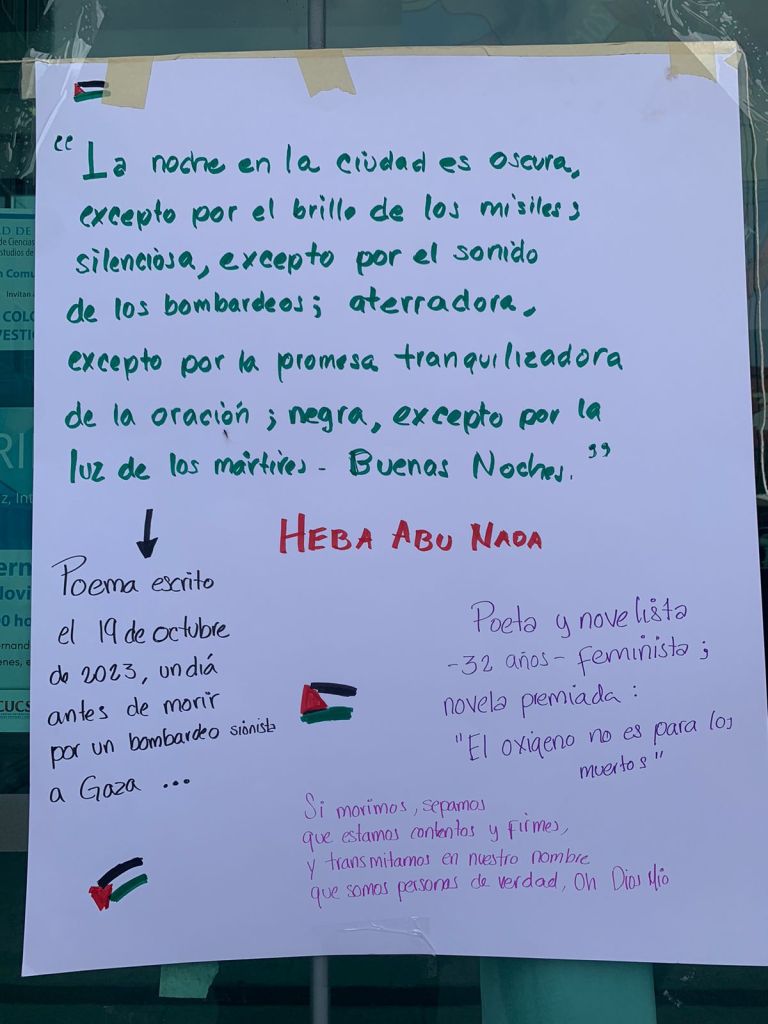 “La noche en la ciudad es oscura,
excepto por el brillo de los misiles;
silenciosa, excepto por el sonido
de los bombardeos; aterradora,
excepto por la promesa tranquilizadora
de la oración; negra, excepto por la
luz de los mártires - Buenas Noches.”
HEBA ABU NADA
Poema escrito
el 19 de octubre
de 2023, un diá
antes de morir
por un bombardeo sionista
a Gaza ...
Poeta y novelista
-32 años- feminista;
novela premiada:
"El oxigeno no es para los
muertos"
Si morimos, sepamos
que estamos contentos y firmes,
y transmitamos en nuestro nombre
que somos personas de verdad, Oh Dios Mío
AD DE
de Ciencias
studios de
Comu
Invitan a
COLO
VESTIG
RI
z, Int
ern
lovi
0 ho
ernand
enes, e
CUCS